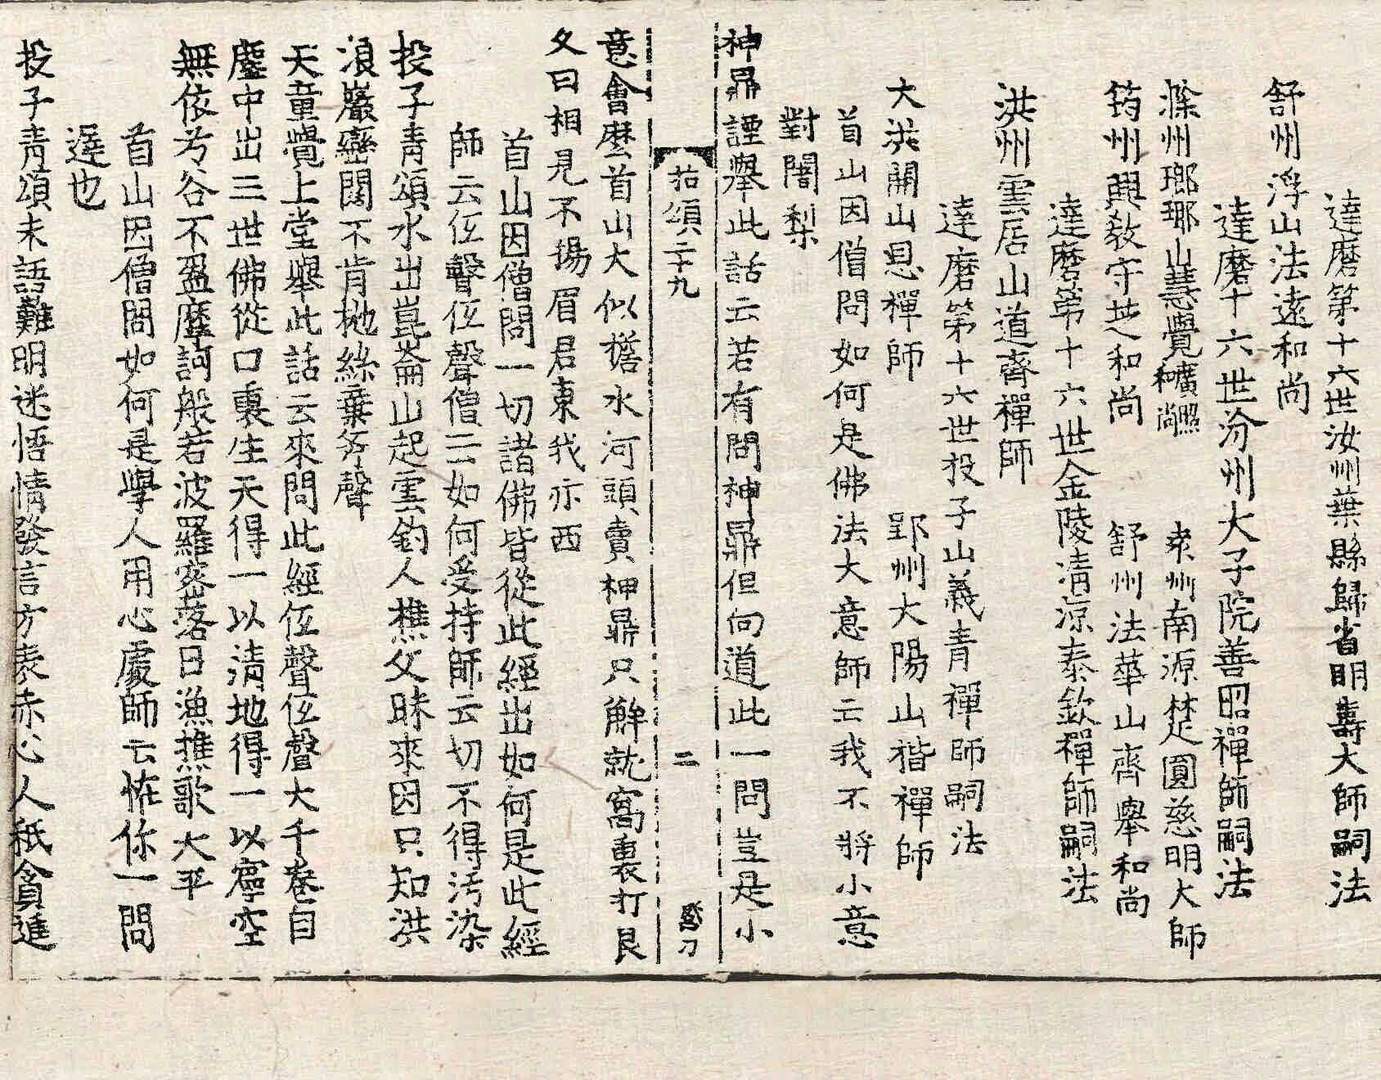 達磨第十六世汝州葉縣歸省明壽大師嗣法
舒州浮山法遠和尚
達磨十六世汾州大子院善昭禪師嗣法
滁州瑯瑘山慧覺和尚 南源楚圓慈明大師
筠州興教守芝和尚 舒州法華山齊舉和尚
達磨第十六世金陵清凉泰欽禪師嗣法
洪州雲居山道齊禪師
達磨第十六世投子山義青禪師嗣法
大洪開山恩禪師 郢州大陽山楷禪師
首山因僧問如何是佛法大意師云我不將小意
對闍梨
神鼎諲舉此話云若有問神鼎但向道此一問豈是小
拈頌二十九 二 刀
意會麽首山大似擔水河頭賣神鼎只解就窩裏打艮
夂曰相見不揚眉君東我亦西
首山因僧問一切諸佛皆從此經出如何是此經
師云伍聲伍聲僧云如何受持師云切不得汚染
投子青頌水出崑崙山起雲釣人樵父昧來因只知洪
浪巖巒闊不肯抛絲棄斧聲
天童覺上堂舉此話云來問此經伍聲伍聲大千卷自
塵中出三世佛從口裏生天得一以清地得一以寧空
無依兮谷不盈摩訶般若波羅密落日漁樵歌大平
首山因僧問如何是學人用心處師云恠你一問
遅也
投子青頌未語難明迷悟情發言方表赤心人秖貪進